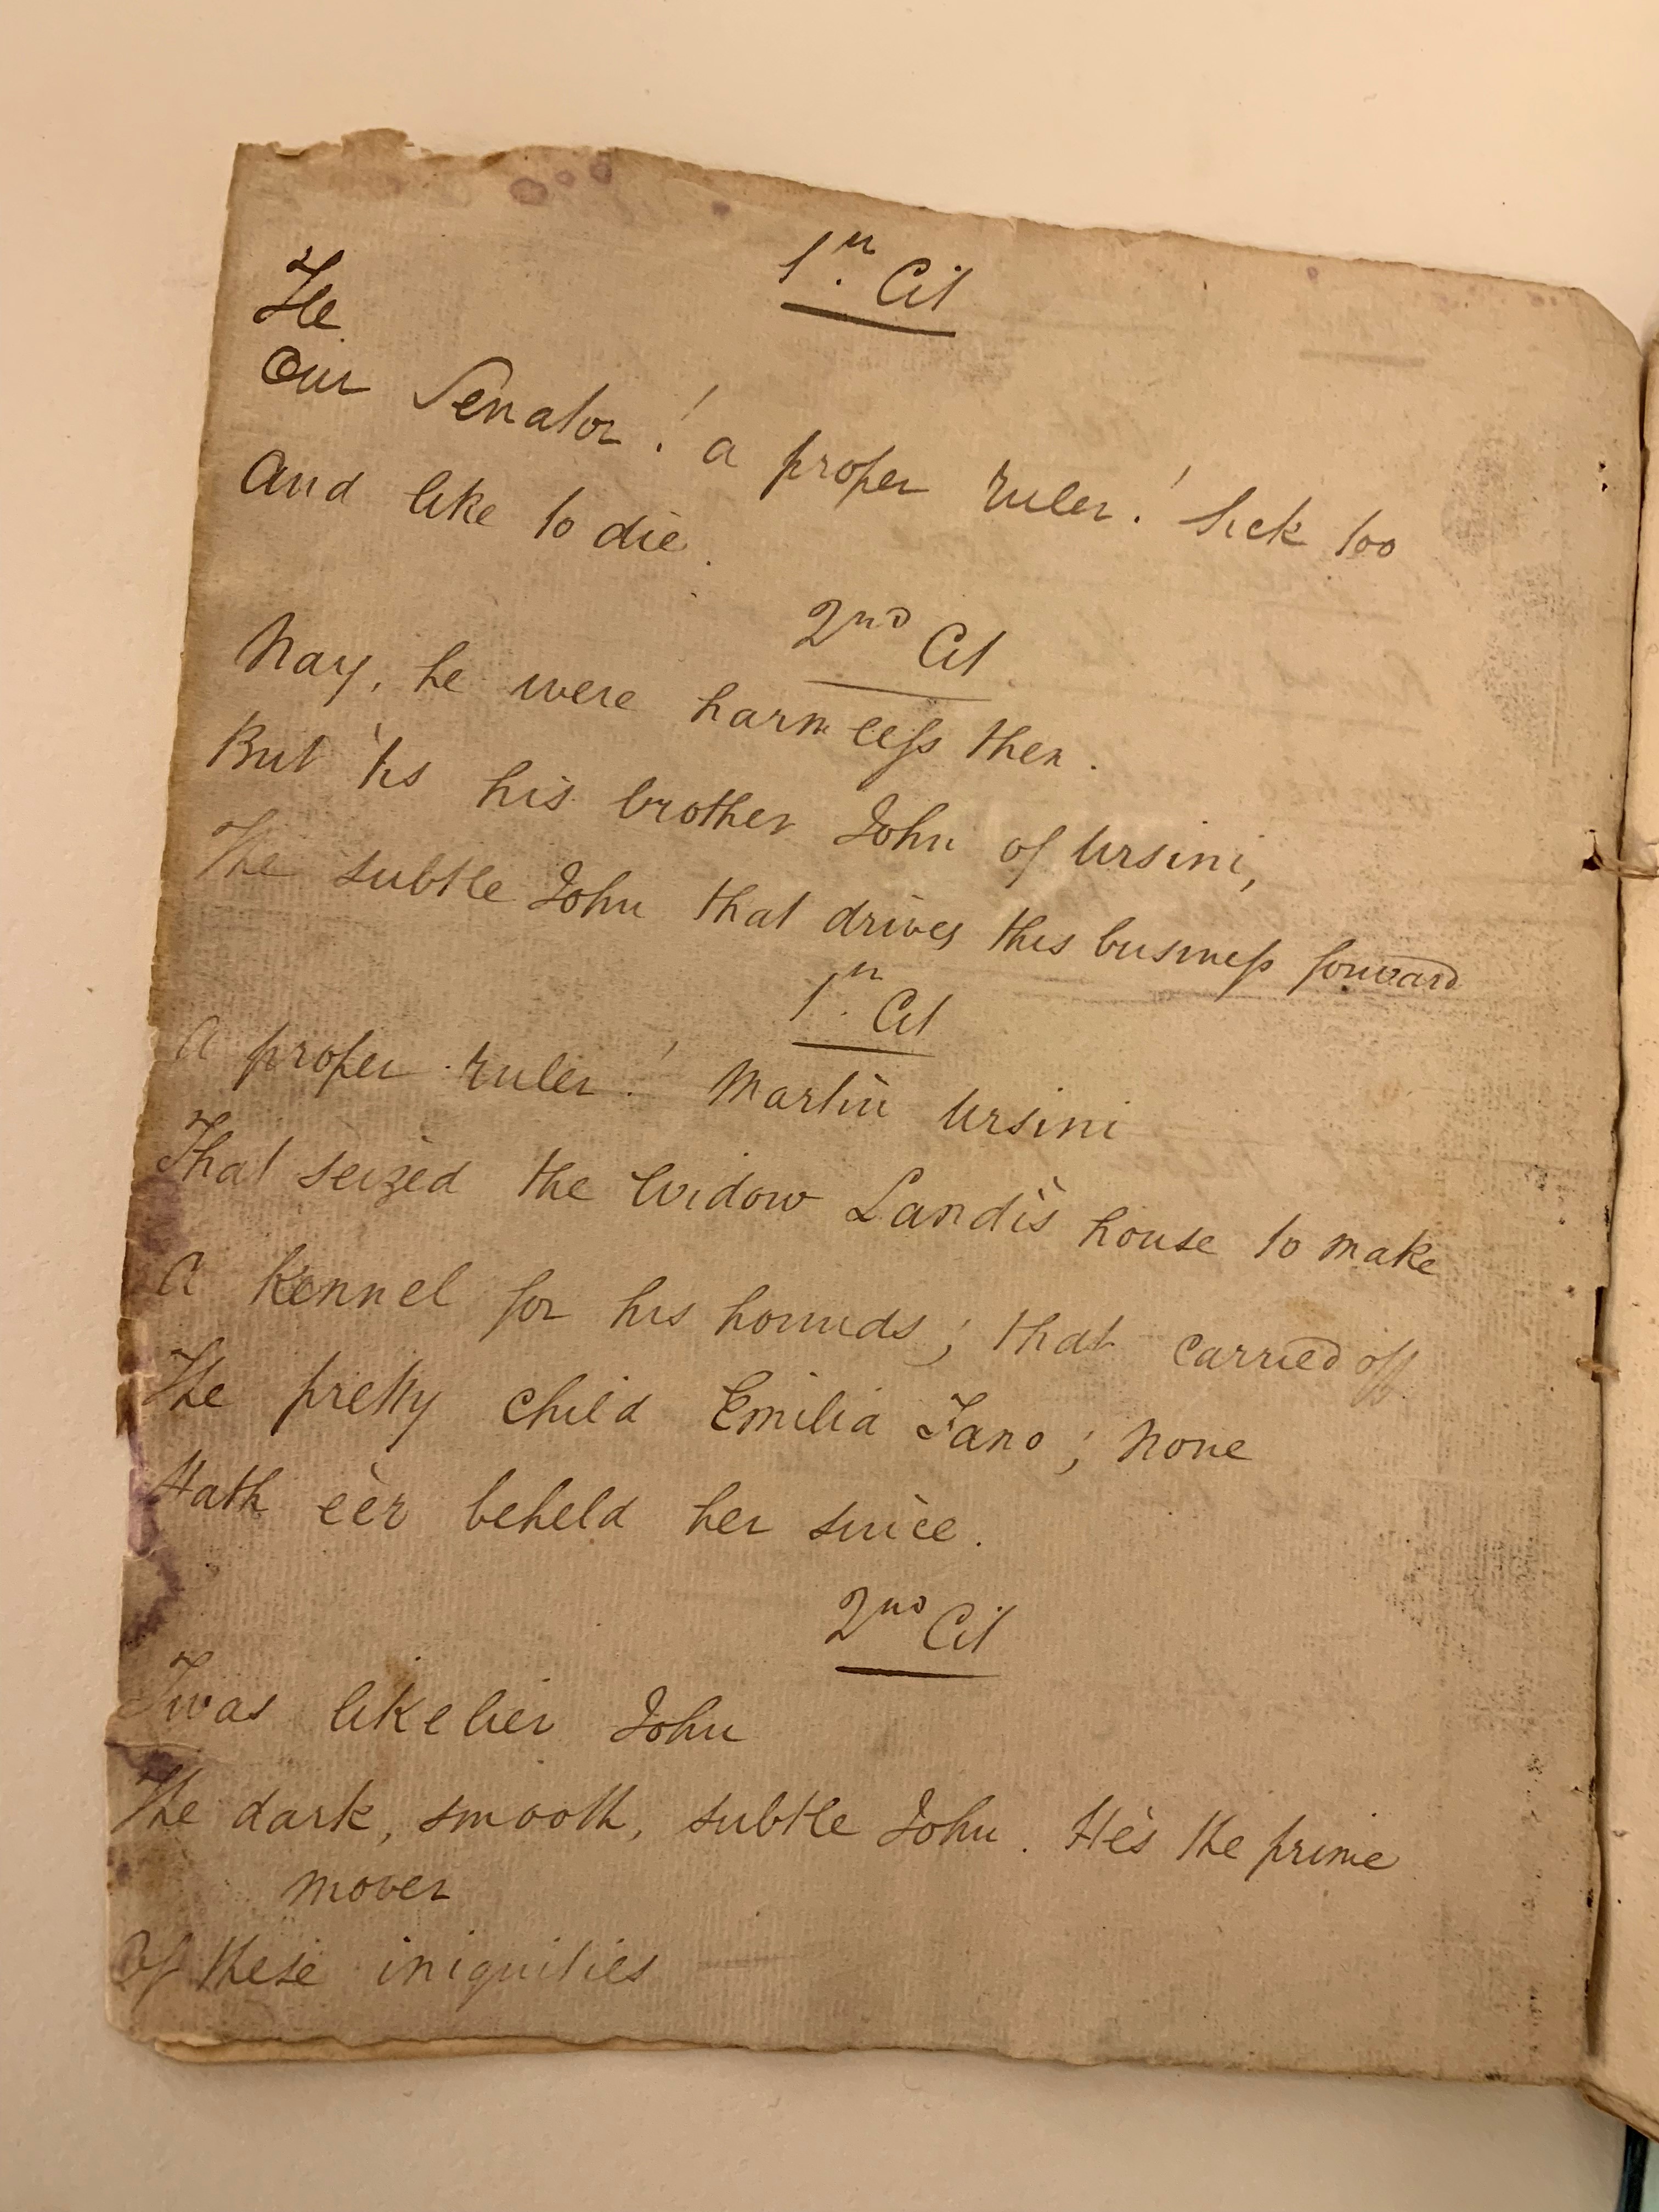 1st. Cit
He
Our Senator! a proper ruler! Sick too
And like to die.
2nd Cit
Nay, he were harmless then.
But 'tis his brother John of Ursini,
The subtle John that drives this business forward
1st. Cit
A proper ruler! Martin Ursini
That seized the Widow Landi's house to make
A kennel for his hounds; that carried off
The pretty child Emilia Fano; none
Hath e'er beheld her since.
2nd Cit
Twas likelier John
The dark, smooth, subtle John. He's the prime
mover
Of these iniquities